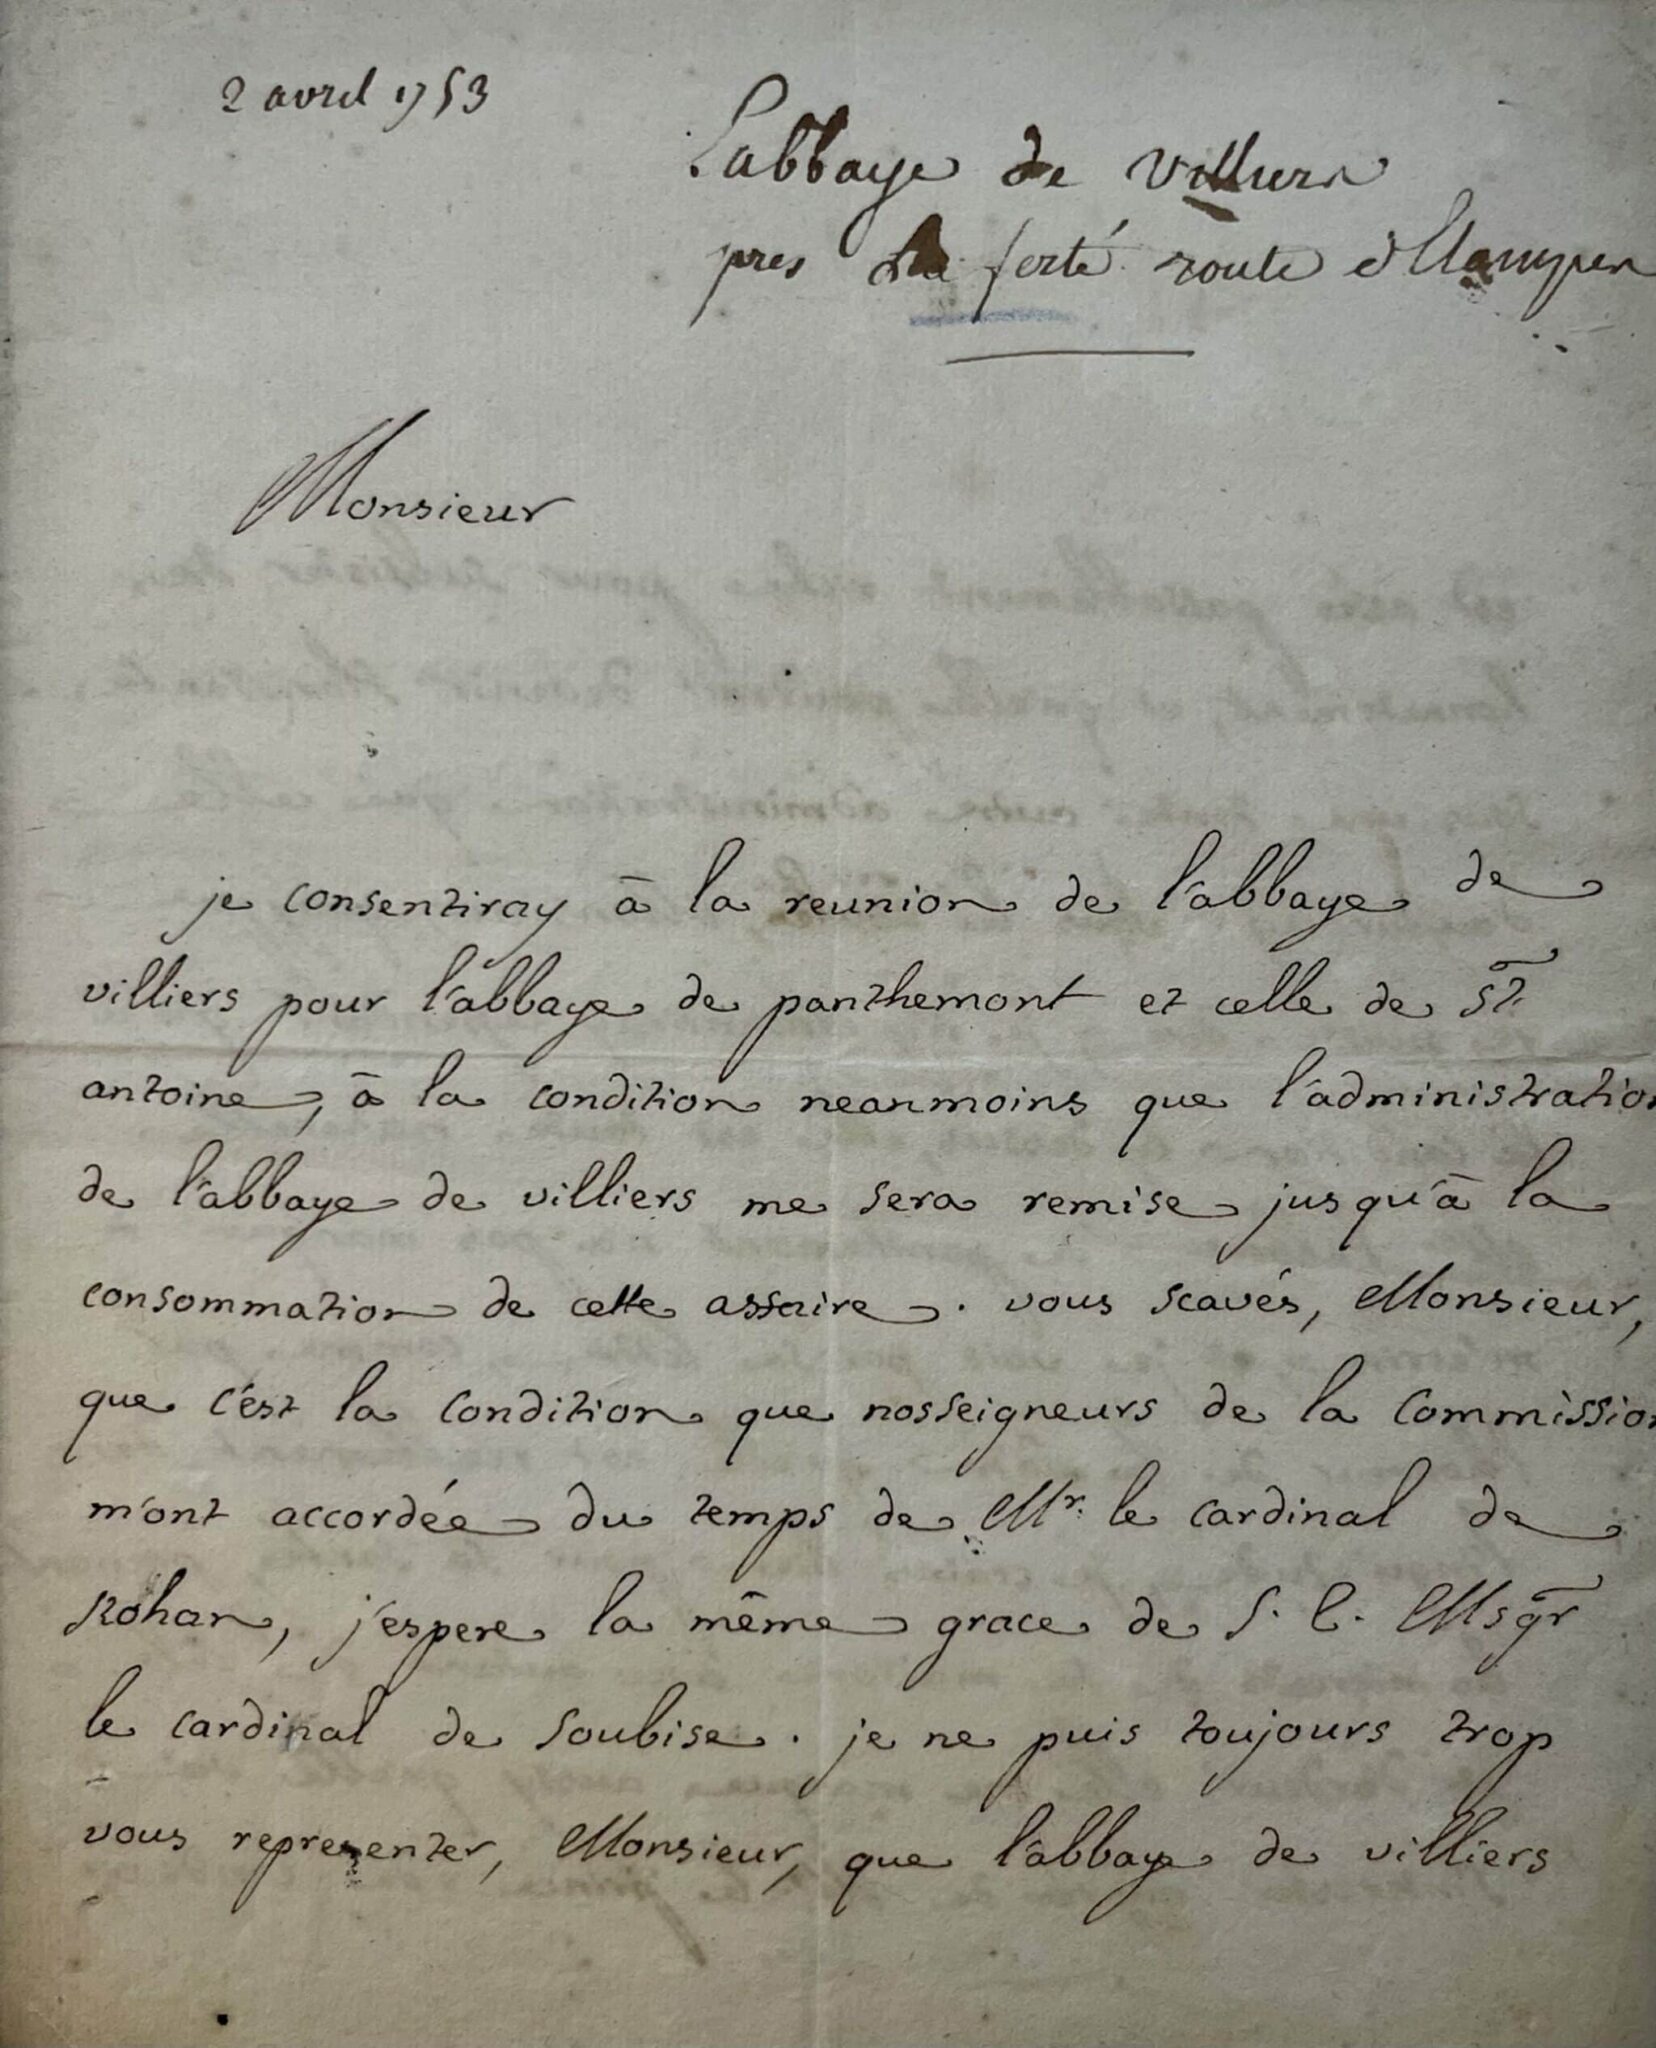 2 avril 1753
L'abbaye de Villiers
pres La ferté route d'Etampes
Monsieur
je consentiray à la reunion de l'abbaye de
villiers pour l'abbaye de panthemont et celle de St.
antoine, à la condition neanmoins que l'administration
de l'abbaye de villiers me sera remise jusqu'à la
consommation de cette affaire. vous scavés, Monsieur,
que c'est la condition que nosseigneurs de la commission
m'ont accordée du temps de Mr. le cardinal de
Rohan, j'espere la même grace de S. E. Msgr
le cardinal de Soubise. je ne puis toujours trop
vous representer, Monsieur, que l'abbaye de villiers